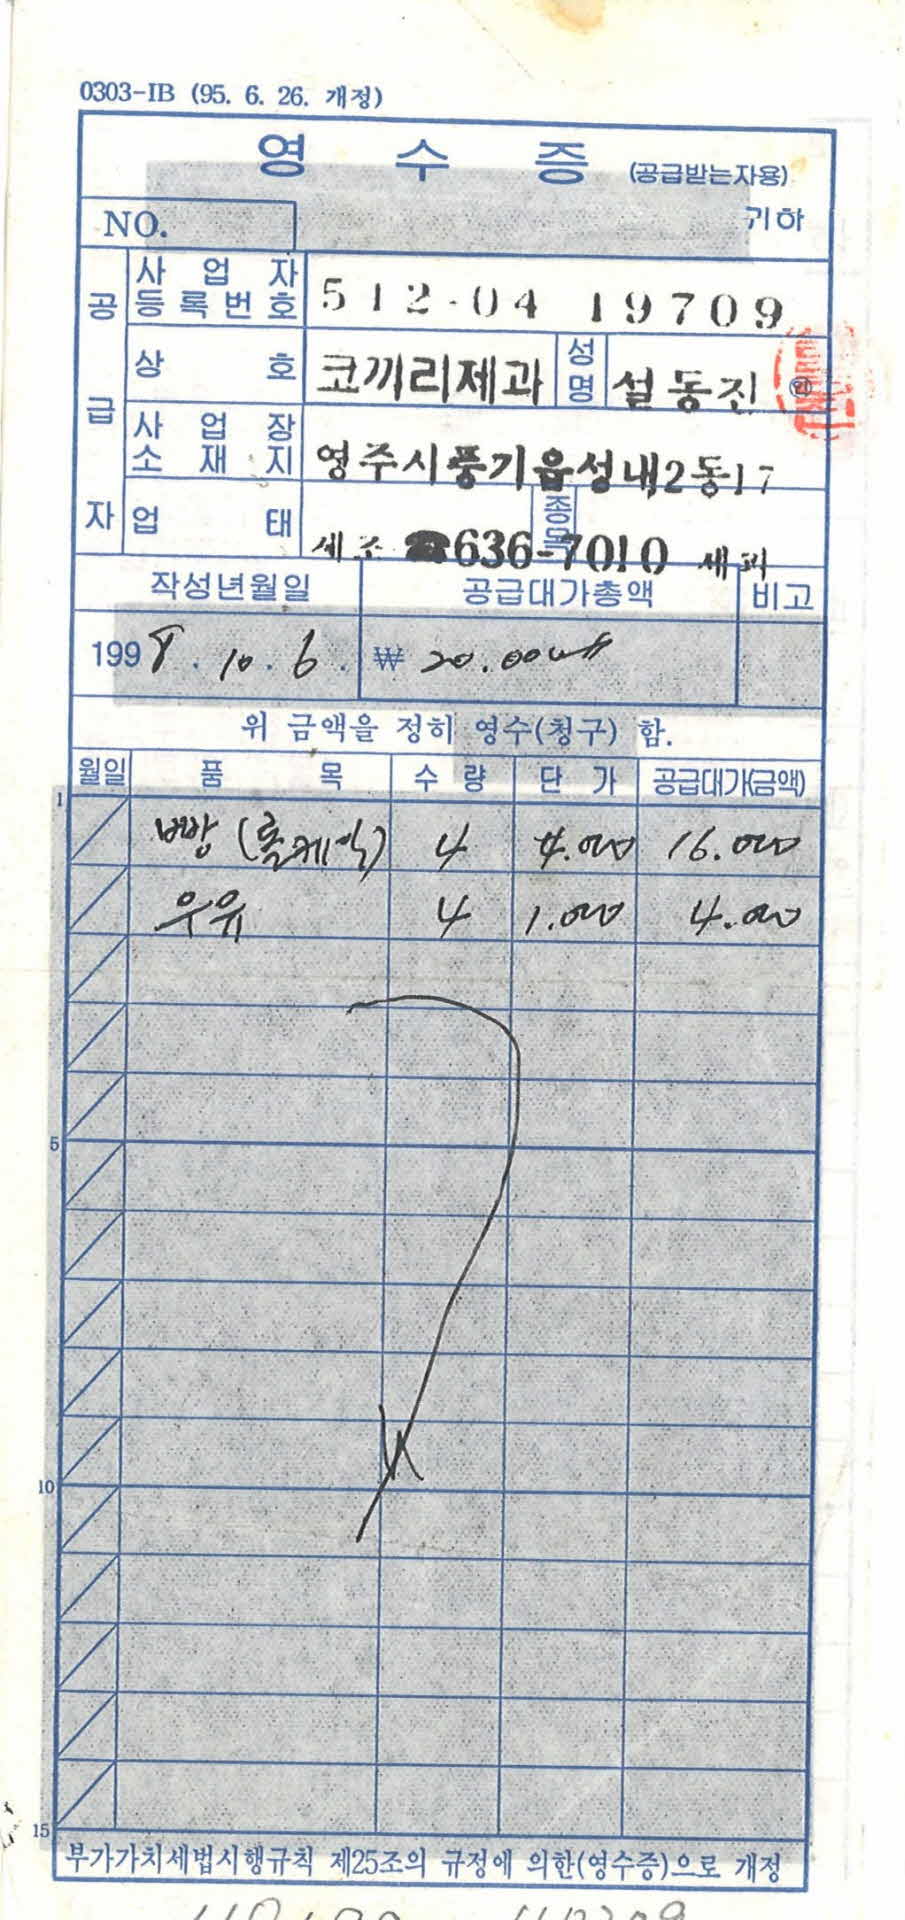 0303-IB (95. 6. 26. 개정)
영 수 증 (공급받는자용)
NO. 귀하
공급자
사업자등록번호 512-04 19709
상호 코끼리제과 성명 설동진 ㊞
사업장소재지 영주시풍기읍성내2동17
업태 종목
☎636-7010
작성년월일 공급대가총액 비고
1998. 10. 6. ₩ 20.000
위 금액을 정히 영수(청구) 함.
월일 품목 수량 단가 공급대가(금액)
1
빵 (롤케익) 4 4.000 16.000
우유 4 1.000 4.000
5
10
15
부가가치세법시행규칙 제25조의 규정에 의한(영수증)으로 개정